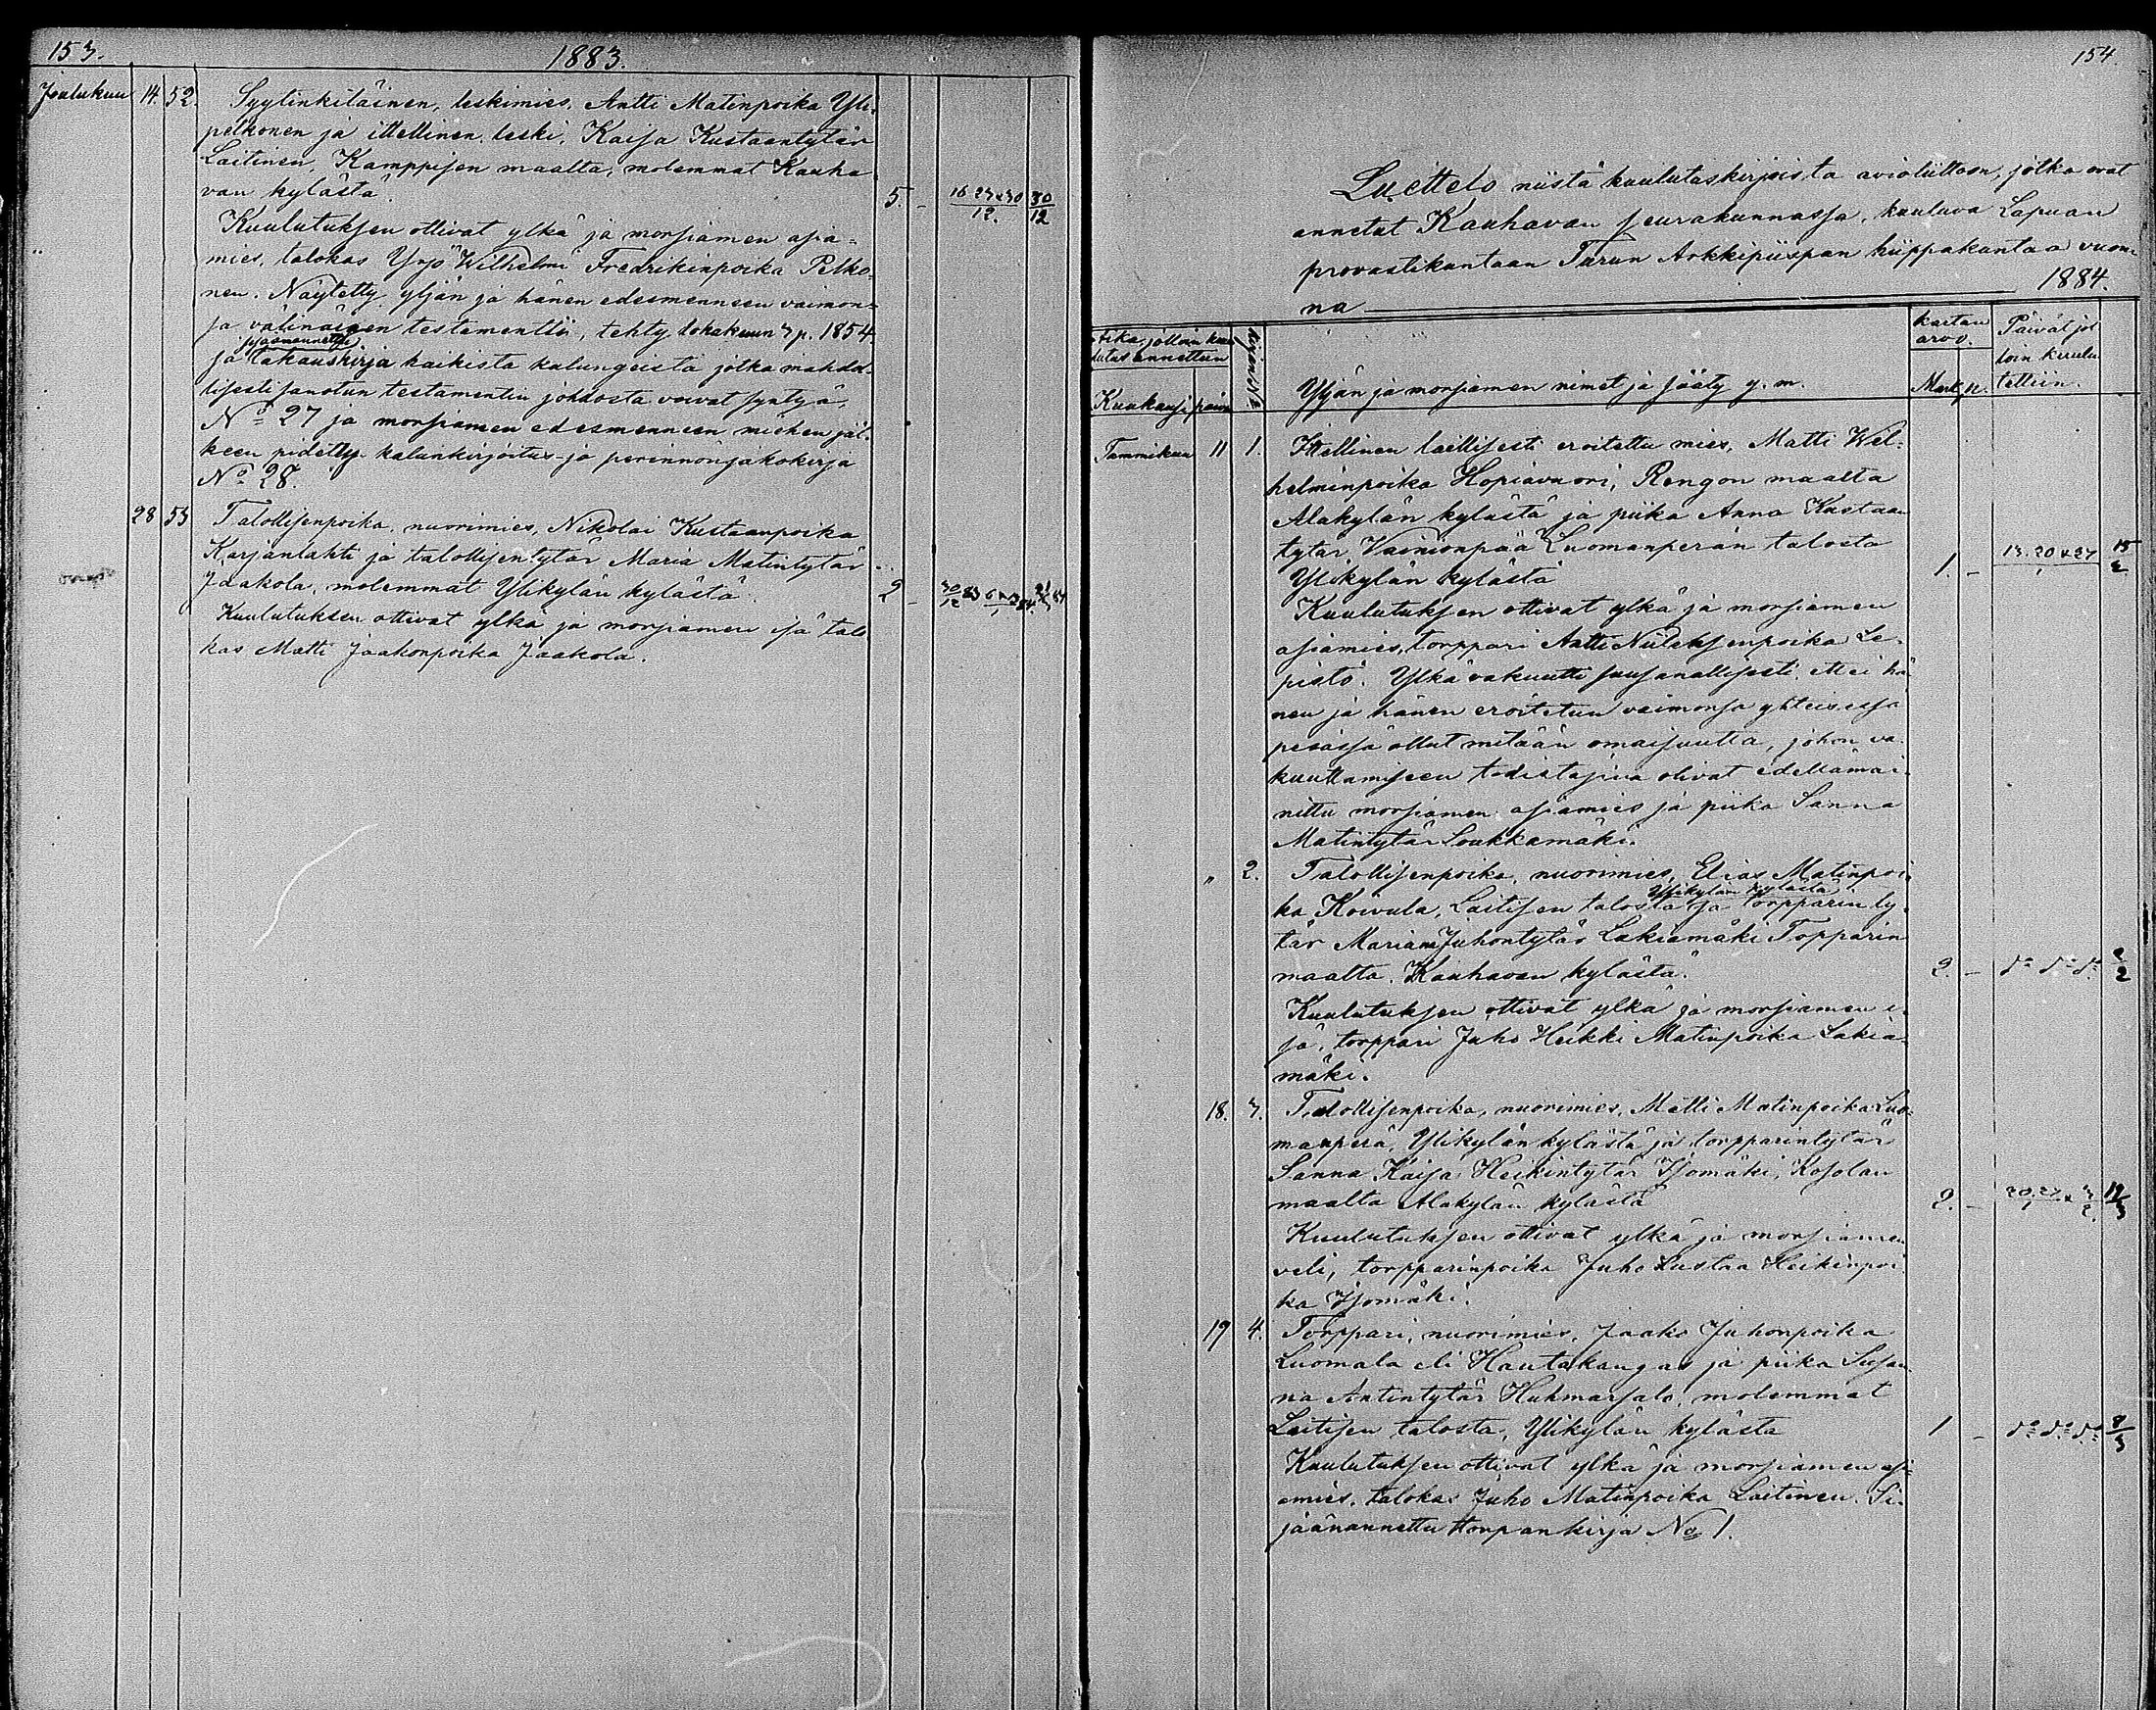 153. 1883.
Joulukuu 14. 52. Syytinkiläinen, leskimies, Antti Matinpoika Yli-
pelkonen ja ittellinen leski, Kaisa Kustaantytär
Laitinen, Kamppisen maalta, molemmat Kauha-
van kylästä. 5. - 16. 23 x 30/12. 30/12
Kuulutuksen ottivat ylkä ja morsiamen asia-
mies, talokas Yrjö Wilhelmi Fredrikinpoika Pelko-
nen. Näytetty yljän ja hänen edesmenneen vaimon-
sa välinäisen testamentti, tehty lokakuun 3 p. 1854.
sisäänannettu
ja takauskirja kaikista kalungeista jotka mahdol-
lisesti sanotun testamentin johdosta voivat syntyä,
No 27 ja morsiamen edesmenneen miehen jäl-
keen pidetty kalunkirjoitus- ja perinnönjakokirja
No 28.
28 53 Talollisenpoika, nuorimies, Nikolai Kustaanpoika
Karjanlahti ja talollisentytär Maria Matintytär
Jaakola, molemmat Ylikylän kylästä. 2 - 30/12 83
Kuulutuksen ottivat ylkä ja morsiamen isä talo-
kas Matti Jaakonpoika Jaakola.
154.
Luettelo niistä kuulutuskirjoista avioliittoon, jotka ovat
annetut Kauhavan seurakunnassa, kuuluva Lapuan
provastikuntaan Turun Arkkipiispan hiippakuntaa vuon-
na 1884.
Aika, jolloin kuu-
lutus annettiin
Kuukausi päivä
Yljän ja morsiamen nimet ja sääty y. m.
kartan
arvo.
Mark. p.
Päivät jol-
loin kuulu-
tettiin.
Tammikuu 11 1. Ittellinen laillisesti eroitettu mies, Matti Wil-
helminpoika Hopiavuori, Rengon maalta
Alakylän kylästä ja piika Anna Kustaan-
tytär Vainionpää Luomanperän talosta
Ylikylän kylästä 1. - 13. 20 x 27/1 15/2
Kuulutuksen ottivat ylkä ja morsiamen
asiamies, torppari Antti Niileksenpoika Le-
pistö. Ylkä vakuutti suusanallisesti, ettei hä-
nen ja hänen eroitetun vaimonsa yhteisessa
pesässä ollut mitään omaisuutta, johon va-
kuuttamiseen todistajina olivat edellämai-
nittu morsiamen asiamies ja piika Sanna
Matintytär Loukkamäki.
" 2. Talollisenpoika, nuorimies, Elias Matinpoi-
Ylikylän kylästä
ka Koivula, Laitisen talosta ja torpparinty-
tär Maria Juhontytär Lakiamäki Topparin
maalta, Kauhavan kylästä. 2. - do do do 2/2
Kuulutuksen ottivat ylkä ja morsiamen i-
sä, torppari Juho Heikki Matinpoika Lakia-
mäki.
18. 3. Talollisenpoika, nuorimies, Matti Matinpoika Luo-
manperä, Ylikylän kylästä ja torpparintytär
Sanna Kaisa Heikintytär Isomäki, Kosolan
maalta Alakylän kylästä 2. - 20. 27/1 x 3/2. 12/3
Kuulutuksen ottivat ylkä ja morsiamen
veli, torpparinpoika Juho Kustaa Heikinpoi-
ka Isomäki.
19 4. Torppari, nuorimies, Jaako Juhonpoika
Luomala eli Hautakangas ja piika Susan-
na Antintytär Huhmarsalo, molemmat
Laitisen talosta, Ylikylän kylästä 1 - do do do 8/3
Kuulutuksen ottivat ylkä ja morsiamen asi-
amies, talokas Juho Matinpoika Laitinen. Si-
säänannettu torpankirja No 1.